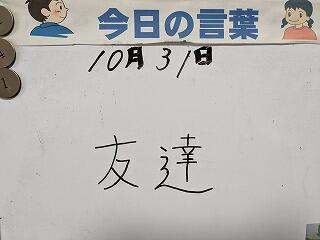 今日の言葉
10月31日
友達